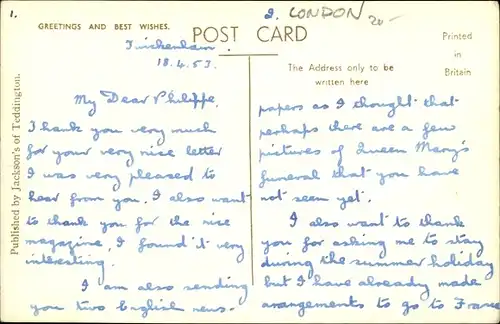 1.
GREETINGS AND BEST WISHES.
2. LONDON
20-
POST CARD
Printed
in
Britain
The Address only to be
written here
Published by Jackson's of Teddington.
Twickenham.
18.4.53.
My Dear Philippe,
Thank you very much
for your very nice letter
I was very pleased to
hear from you. I also want
to thank you for the nice
magazine, I found it very
interesting.
I am also sending
you two English news-
papers as I thought that
perhaps there are a few
pictures of Queen Mary's
funeral that you have
not seen yet.
I also want to thank
you for asking me to stay
during the summer holiday
but I have already made
arangements to go to France